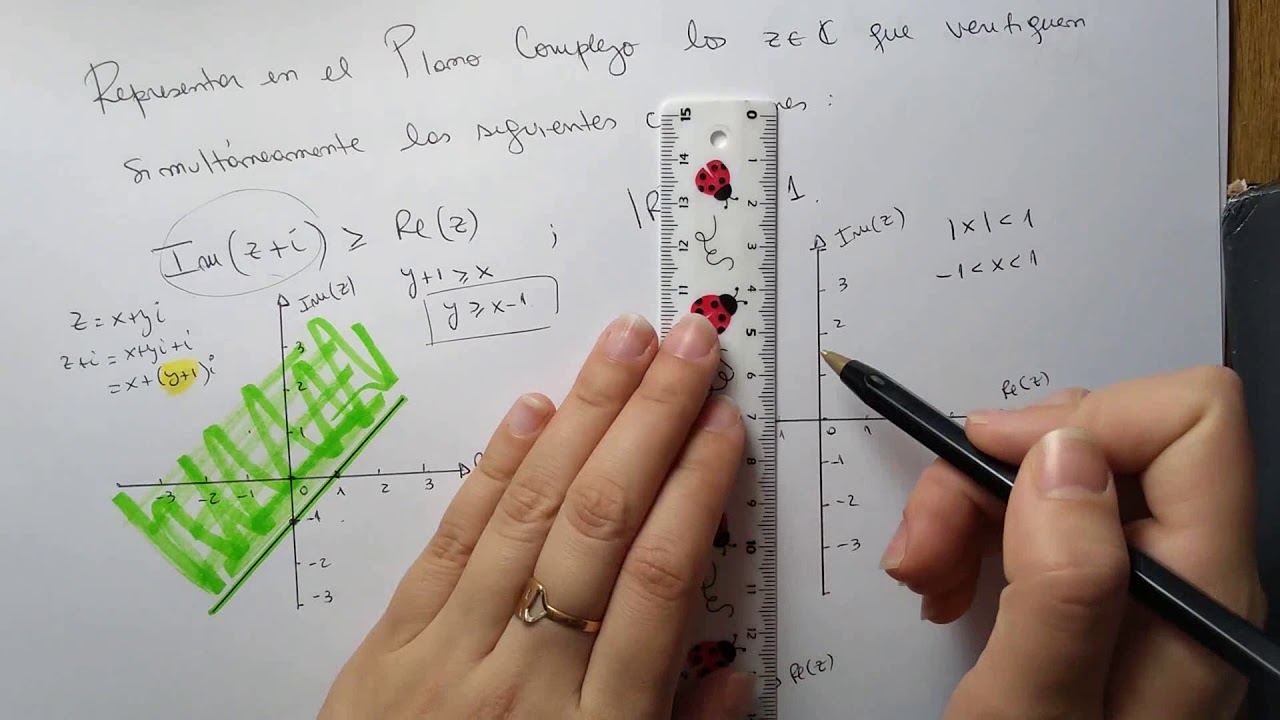 Representar en el Plano Complejo los z∈ℂ que verifiquen
simultáneamente las siguientes c nes :
Im(z+i) ≥ Re(z) ; |R 1.
z = x+yi
z+i = x+yi+i
= x+(y+1)i
y+1 ≥ x
y ≥ x-1
Im(z)
3
2
1
-3 -2 -1 0 1 2 3
-1
-2
-3
15 14 13 12 11
0 1 2 3 4 5 6 7 8 9 10 11 12
Im(z)
|x| < 1
-1 < x < 1
3
2
Re(z)
1 0 1
-1
-2
-3
Re(z)